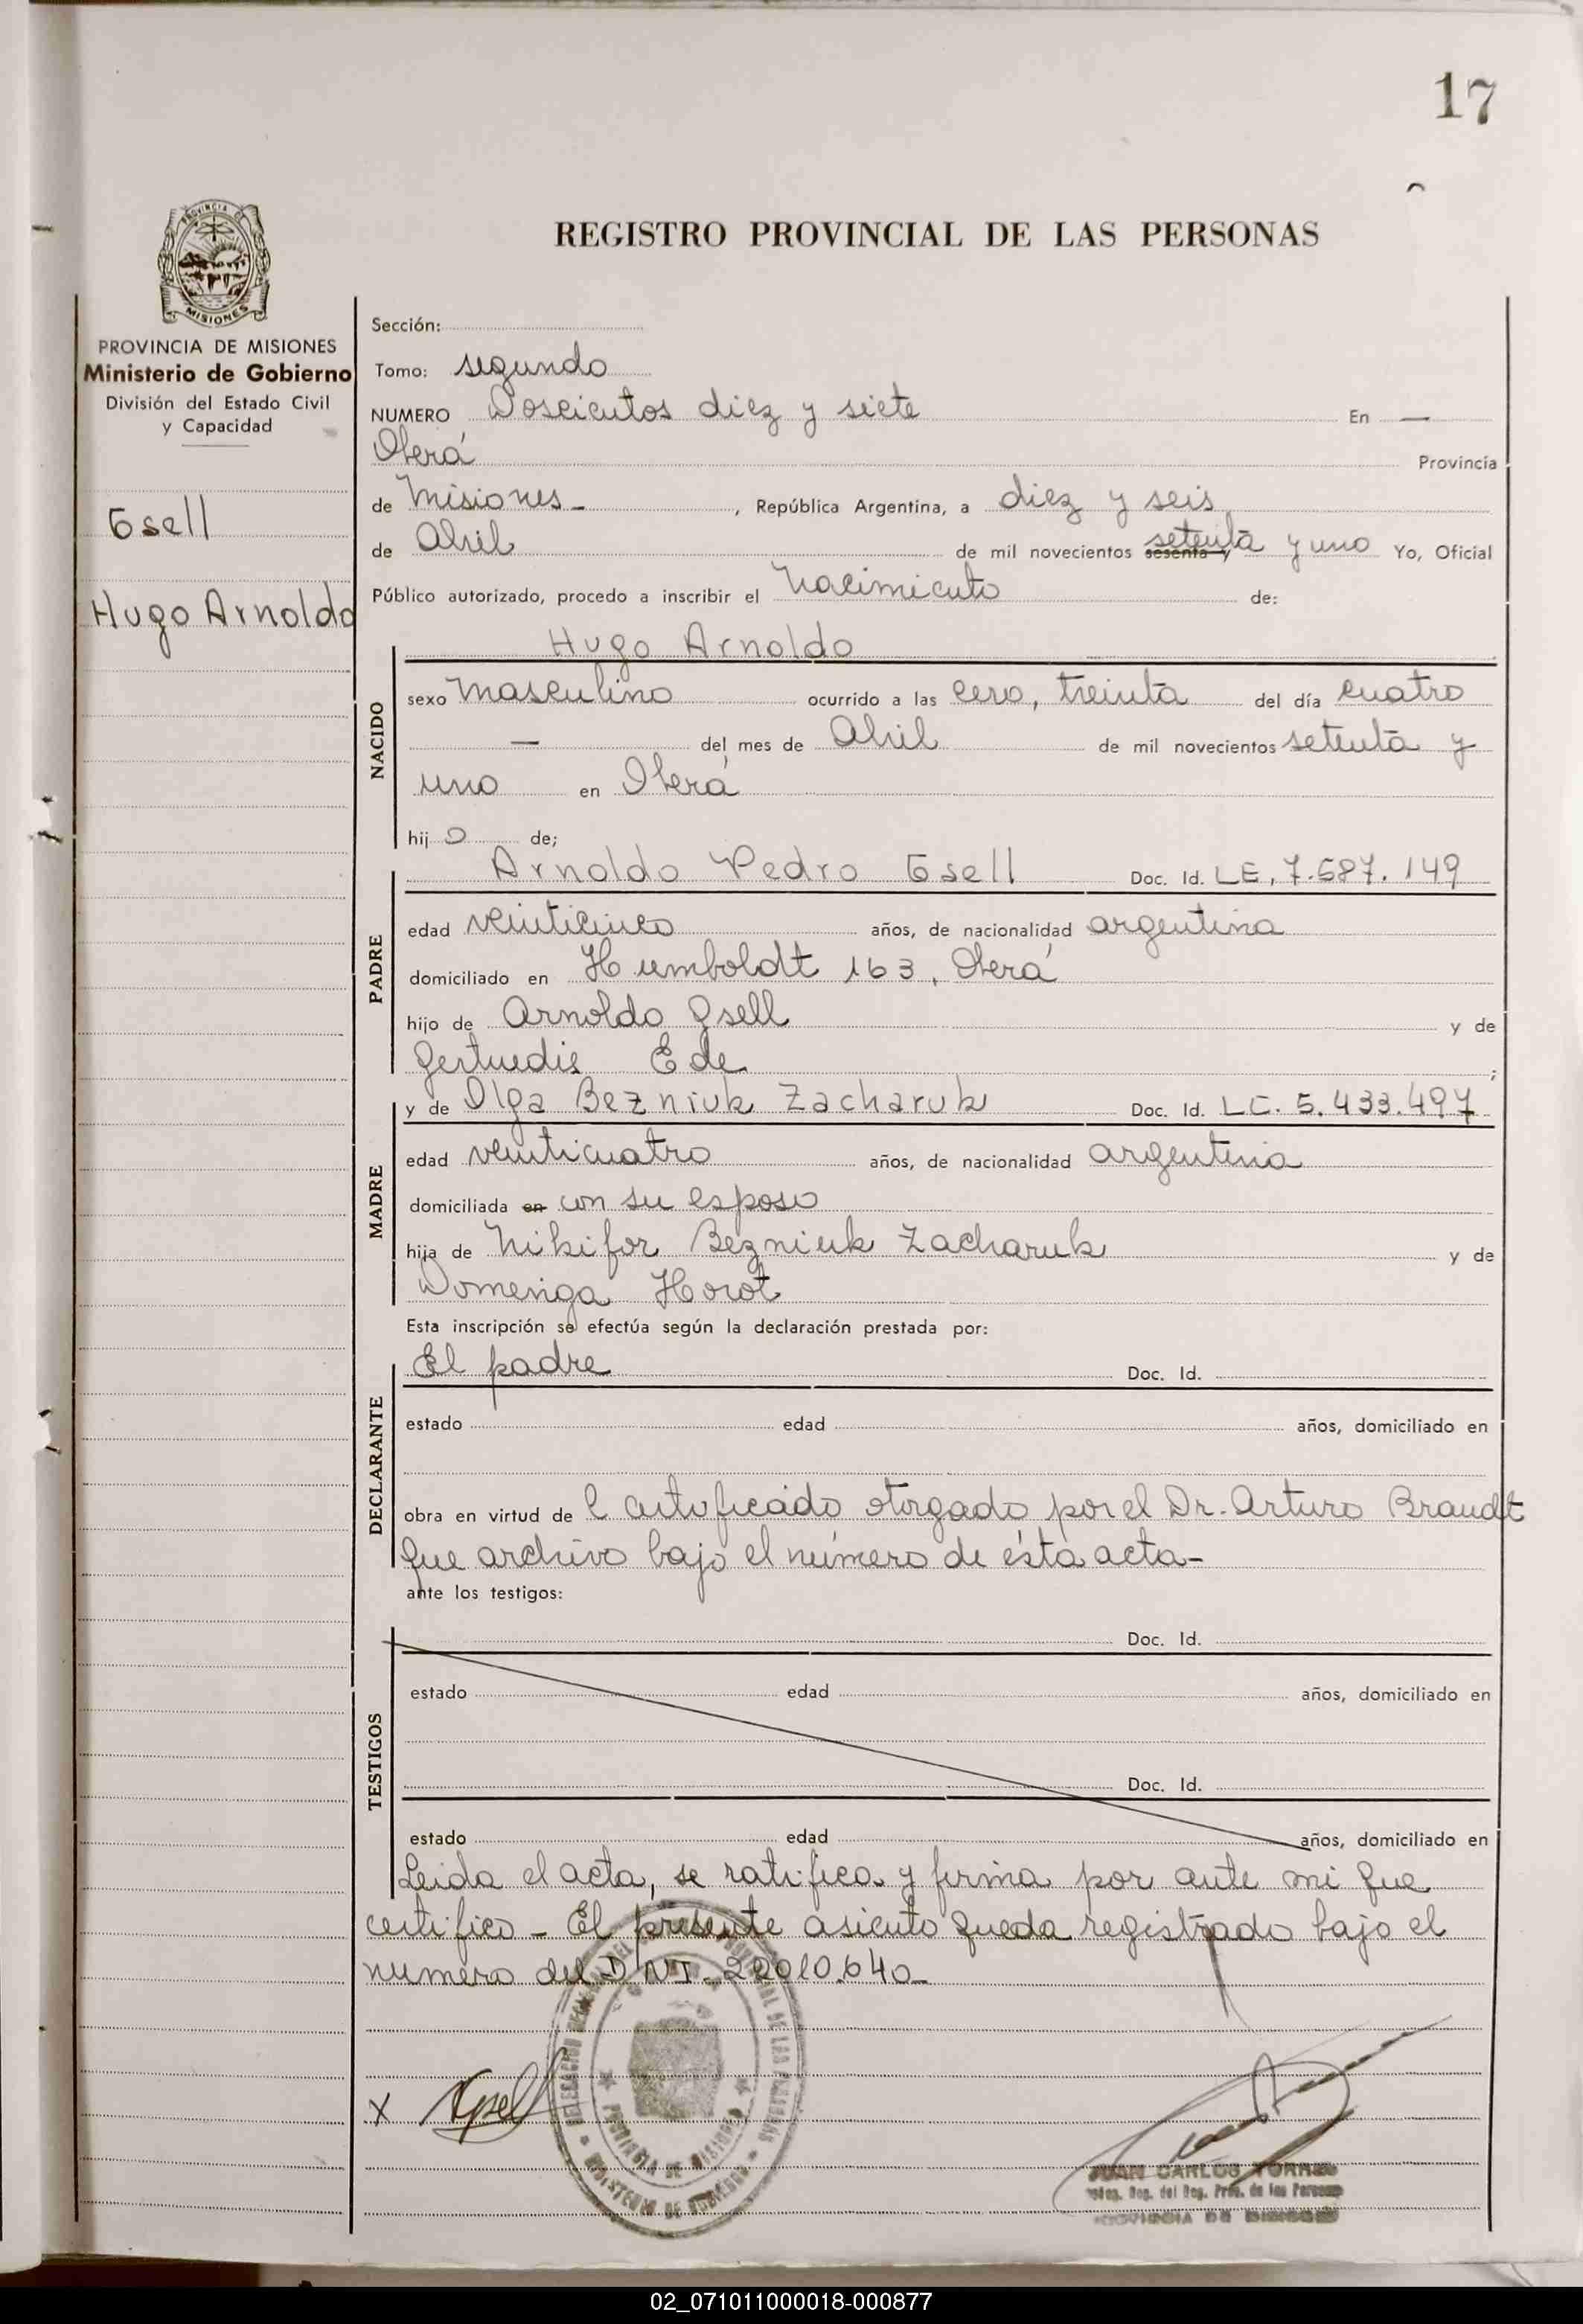 17
REGISTRO PROVINCIAL DE LAS PERSONAS
PROVINCIA DE
MISIONES
PROVINCIA DE MISIONES
Ministerio de Gobierno
División del Estado Civil
y Capacidad
Gsell
Hugo Arnoldo
Sección:
Tomo: segundo
NUMERO Doscientos diez y siete En —
Oberá Provincia
de Misiones - , República Argentina, a diez y seis
de Abril de mil novecientos sesenta y setenta y uno Yo, Oficial
Público autorizado, procedo a inscribir el Nacimiento de:
Hugo Arnoldo
NACIDO
sexo masculino ocurrido a las cero, treinta del día cuatro
— del mes de Abril de mil novecientos setenta y
uno en Oberá
hijo de;
PADRE
Arnoldo Pedro Gsell Doc. Id. LE. 7.687.149
edad veinticinco años, de nacionalidad argentina
domiciliado en Humboldt 163, Oberá
hijo de Arnoldo Gsell y de
Gertrudis Ede ;
MADRE
y de Olga Bezniuk Zacharuk Doc. Id. LC. 5.433.497
edad veinticuatro años, de nacionalidad argentina
domiciliada en con su esposo
hija de Nikifor Bezniuk Zacharuk y de
Domeniga Horot
Esta inscripción se efectúa según la declaración prestada por:
DECLARANTE
El padre Doc. Id.
estado edad años, domiciliado en
obra en virtud de l certificado otorgado por el Dr. Arturo Brandt
que archivo bajo el número de ésta acta-
ante los testigos:
TESTIGOS
Doc. Id.
estado edad años, domiciliado en
Doc. Id.
estado edad años, domiciliado en
Leida el acta, se ratifica y firma por ante mi que
certifico - El presente asiento queda registrado bajo el
numero del DNI - 22010.640-
X Gsell
PROVINCIA DE MISIONES
MINISTERIO DE GOBIERNO
JUAN CARLOS TORRES
Reg. del Reg. Prov. de las Personas
PROVINCIA DE MISIONES
02_071011000018-000877